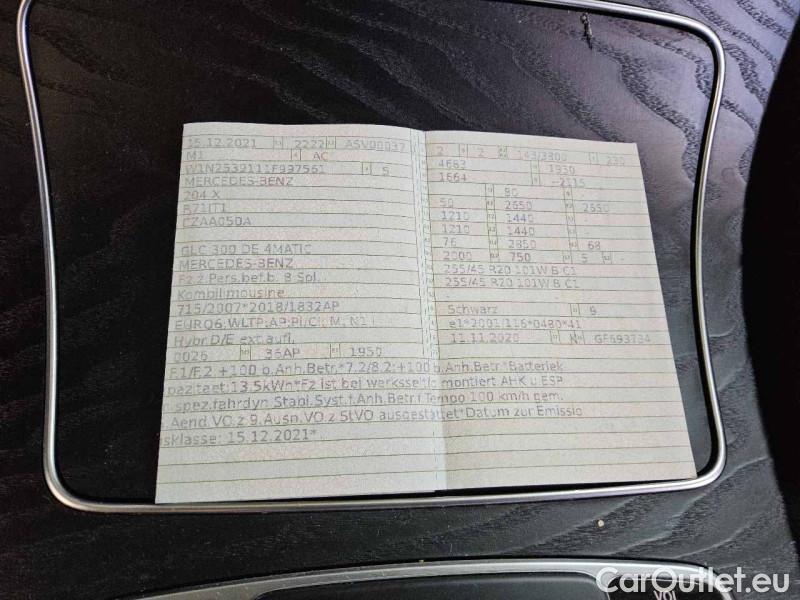 15.12.2021 2222 ASV00037
M1 AC
W1N2539111F997561 5
MERCEDES-BENZ
204 X
R71IT1
CZAA050A
GLC 300 DE 4MATIC
MERCEDES-BENZ
Fz.z.Pers.bef.b. 8 Spl.
Kombilimousine
715/2007*2018/1832AP
EURO6;WLTP;AP;PI/CI; M, N1 I
Hybr.D/E ext.aufl.
0026 36AP 1950
2 2 143/3800 230
4683 1930
1664 -2115
90 -
50 2650 2650
1210 1440
1210 1440
76 2850 68
2000 750 5
255/45 R20 101W B C1
255/45 R20 101W B C1
Schwarz 9
e1*2001/116*0480*41
11.11.2020 K GF693734
F.1/F.2 +100 b.Anh.Betr.*7.2/8.2:+100 b.Anh.Betr.*Batteriek
pazitaet:13,5kWh*Fz ist bei werksse montiert AHK u ESP
spez.fahrdyn.Stabi.Syst.f.Anh.Betr.f.Tempo 100 km/h gem.
Aend.VO.z 9.Ausn.VO z StVO ausgestattet*Datum zur Emissio
sklasse: 15.12.2021*
CarOutlet.eu